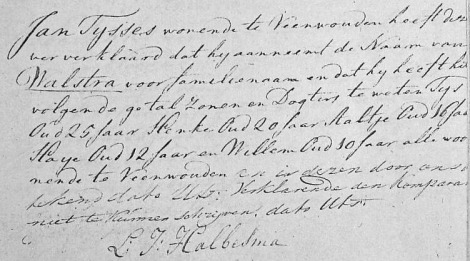 Jan Tysses wonende te Veenwouden heeft deze
ver verklaard dat hy aanneemt de Naam van
Walstra voor familienaam en dat hy heeft het
volgende getal Zonen en Dogters te weten Tys
Oud 25 Jaar Henke Oud 20 Jaar Aaltje Oud 16 Jaar
Haye Oud 12 Jaar en Willem Oud 10 Jaar alle wo
nende te Veenwouden en is dezen door ons
tekend dato Uts: Verklarende den Kompara
niet te kunnen schrijven. dato Uts
L: J: Halbesma